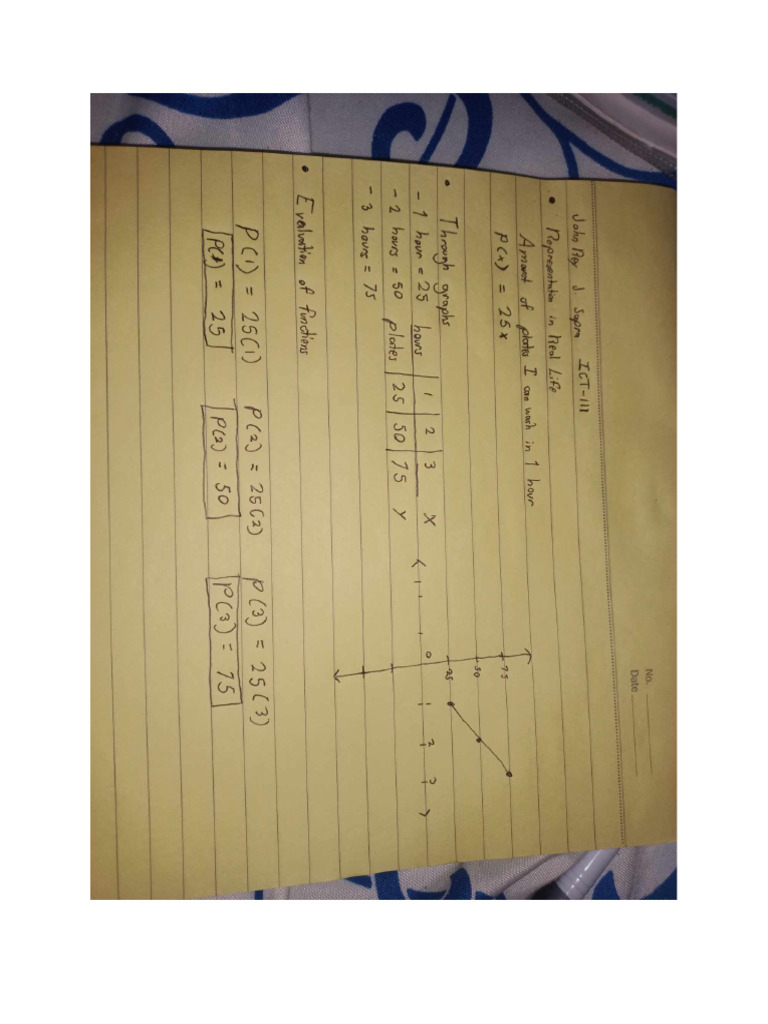 No.
Date
John Rey J. Sapra ICT-111
• Representation in Real Life
Amount of plates I can wash in 1 hour
P(x) = 25x
• Through graphs
- 1 hour = 25
- 2 hours = 50
- 3 hours = 75
hours 1 2 3 X
plates 25 50 75 Y
75
50
25
0 1 2 3
• Evaluation of functions
P(1) = 25(1) P(2) = 25(2) P(3) = 25(3)
P(1) = 25 P(2) = 50 P(3) = 75